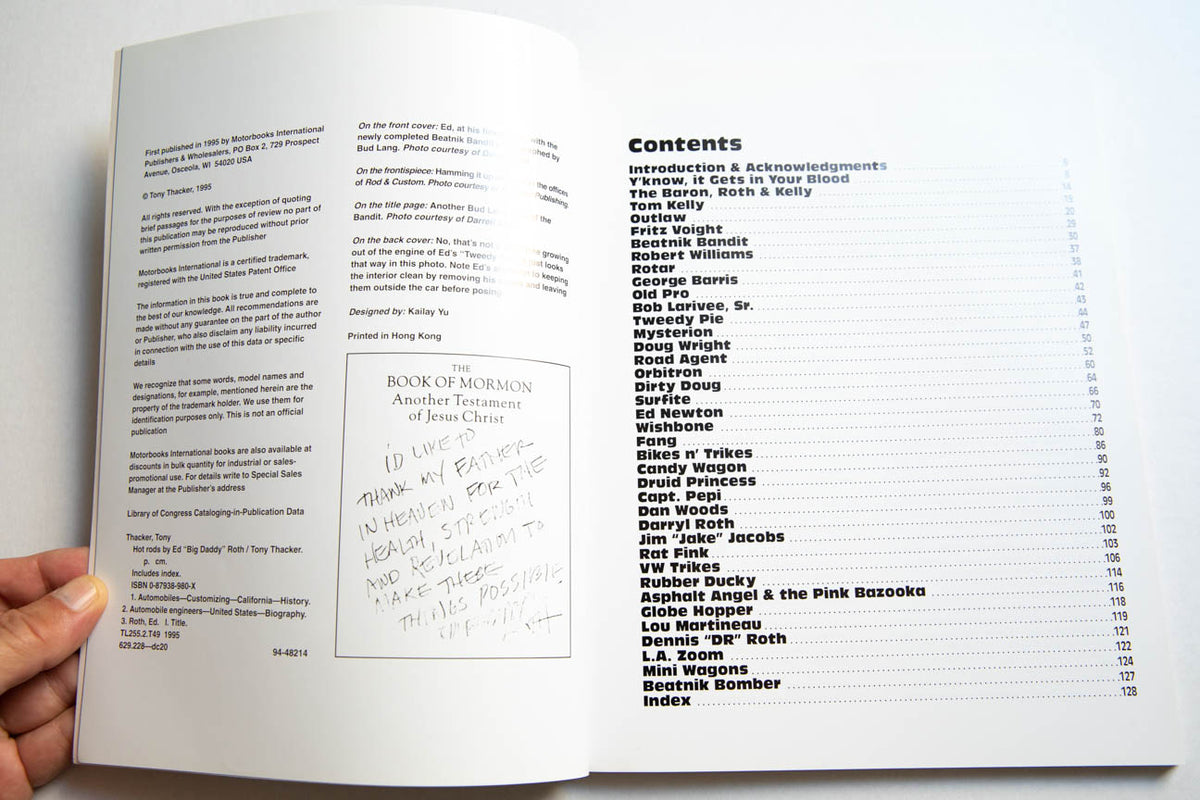 First published in 1995 by Motorbooks International
Publishers & Wholesalers, PO Box 2, 729 Prospect
Avenue, Osceola, WI 54020 USA
© Tony Thacker, 1995
All rights reserved. With the exception of quoting
brief passages for the purposes of review no part of
this publication may be reproduced without prior
written permission from the Publisher
Motorbooks International is a certified trademark,
registered with the United States Patent Office
The information in this book is true and complete to
the best of our knowledge. All recommendations are
made without any guarantee on the part of the author
or Publisher, who also disclaim any liability incurred
in connection with the use of this data or specific
details
We recognize that some words, model names and
designations, for example, mentioned herein are the
property of the trademark holder. We use them for
identification purposes only. This is not an official
publication
Motorbooks International books are also available at
discounts in bulk quantity for industrial or sales-
promotional use. For details write to Special Sales
Manager at the Publisher's address
Library of Congress Cataloging-in-Publication Data
Thacker, Tony
Hot rods by Ed "Big Daddy" Roth / Tony Thacker.
p. cm.
Includes index.
ISBN 0-87938-980-X
1. Automobiles—Customizing—California—History.
2. Automobile engineers—United States—Biography.
3. Roth, Ed. I. Title.
TL255.2.T49 1995
629.228—dc20 94-48214
On the front cover: Ed, at his with the
newly completed Beatnik Bandit by
Bud Lang. Photo courtesy of
On the frontispiece: Hamming it the offices
of Rod & Custom. Photo courtesy Publishing.
On the title page: Another Bud the
Bandit. Photo courtesy of
On the back cover: No, that's not growing
out of the engine of Ed's "Tweedy looks
that way in this photo. Note Ed's to keeping
the interior clean by removing his and leaving
them outside the car before posing
Designed by: Kailay Yu
Printed in Hong Kong
THE
BOOK OF MORMON
Another Testament
of Jesus Christ
I'D LIKE TO
THANK MY FATHER
IN HEAVEN FOR THE
HEALTH, STRENGTH
AND REVELATION TO
MAKE THESE
THINGS POSSIBLE
Contents
Introduction & Acknowledgments
Y'know, it Gets in Your Blood 8
The Baron, Roth & Kelly 14
Tom Kelly 19
Outlaw 20
Fritz Voight 29
Beatnik Bandit 30
Robert Williams 37
Rotar 38
George Barris 41
Old Pro 42
Bob Larivee, Sr. 43
Tweedy Pie 44
Mysterion 47
Doug Wright 50
Road Agent 52
Orbitron 60
Dirty Doug 64
Surfite 66
Ed Newton 70
Wishbone 72
Fang 80
Bikes n' Trikes 86
Candy Wagon 90
Druid Princess 92
Capt. Pepi 96
Dan Woods 99
Darryl Roth 100
Jim "Jake" Jacobs 102
Rat Fink 103
VW Trikes 106
Rubber Ducky 114
Asphalt Angel & the Pink Bazooka 116
Globe Hopper 118
Lou Martineau 119
Dennis "DR" Roth 121
L.A. Zoom 122
Mini Wagons 124
Beatnik Bomber 127
Index 128